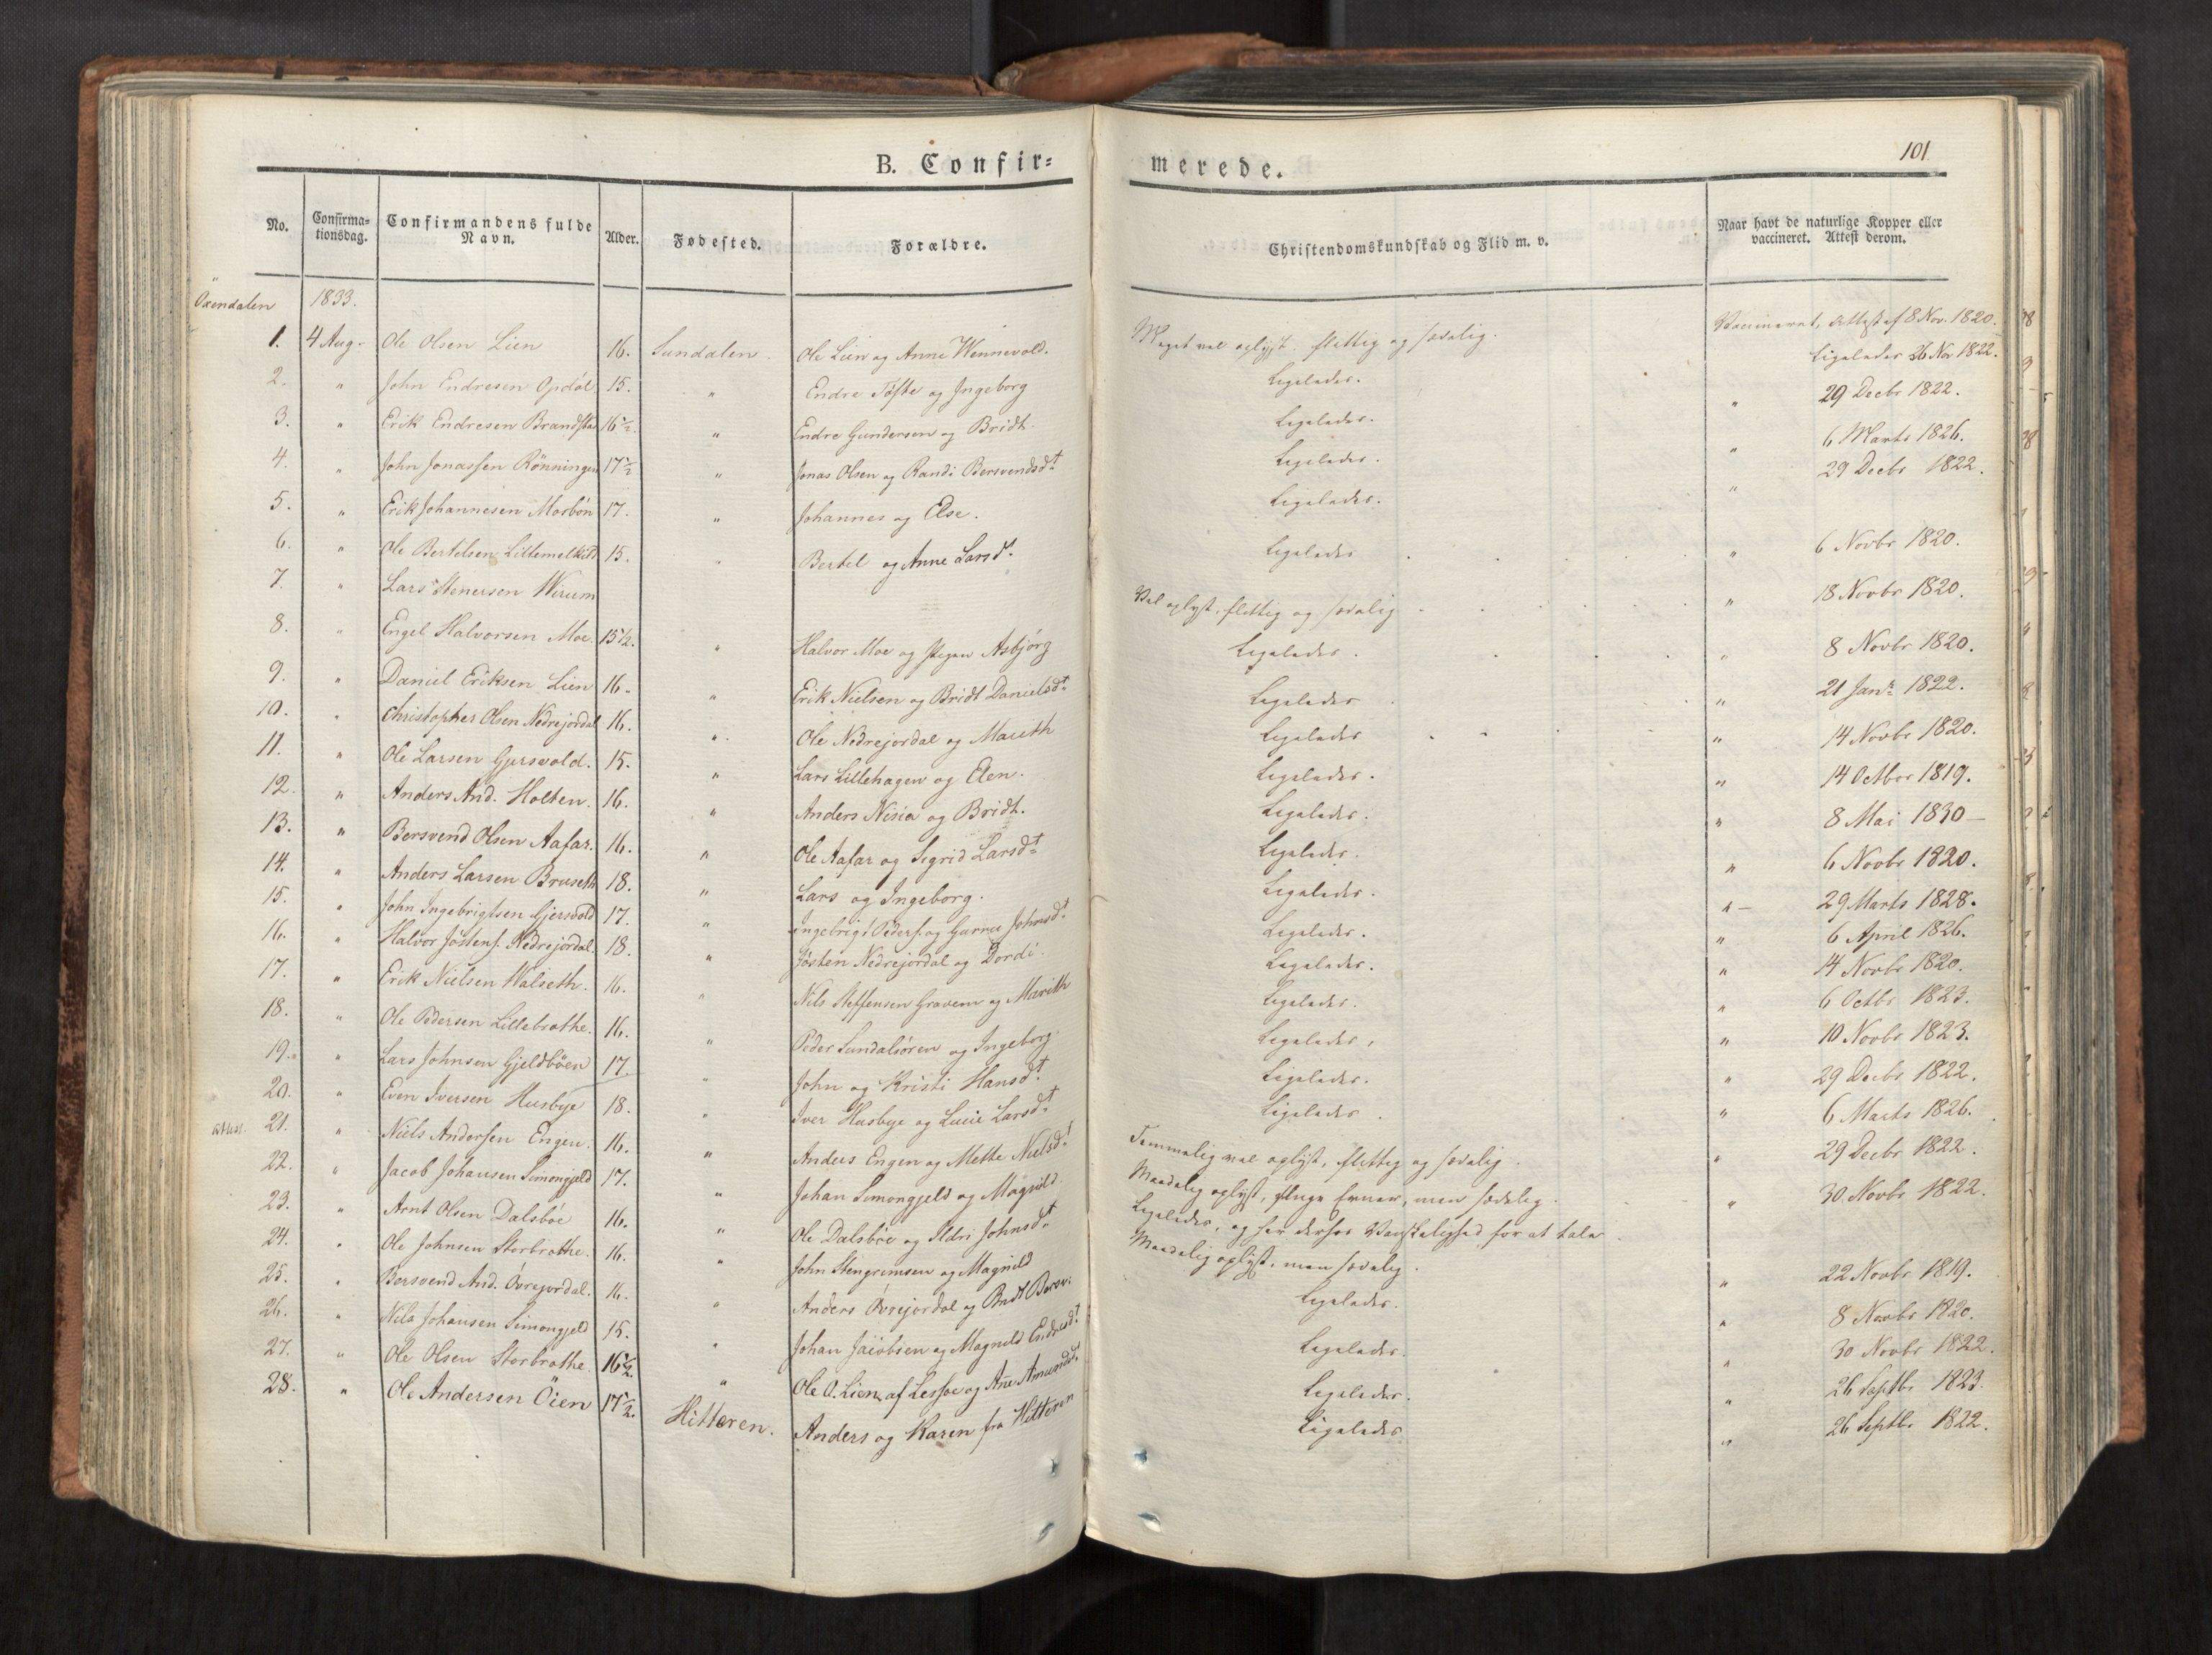 B. Confir=
merede.
101
No. Confirma=tionsdag. Confirmandens fulde Navn. Alder. Fødested. Forældre. Christendomskundskab og Flid m. v. Naar havt de naturlige Kopper eller vaccineret. Attest derom.
Öxendalen 1833.
1. 4 Aug. Ole Olsen Lien 16. Sundalen. Ole Lien og Anne Wennevold. Meget vel oplyst, flittig og sædelig. Vaccineret, Attest af 8 Nov. 1820.
2. " John Endresen Opdøl 15. " Endre Tofte og Ingeborg Ligeledes. Ligeledes 26 Nov 1822.
3. " Erik Endresen Brandstad 16½. " Endre Gundersen og Bridt. Ligeledes. " 29 Decbr 1822.
4. " John Jonassen Rönningen 17½ " Jonas Olsen og Randi Bersvendsdt. Ligeledes. " 6 Marts 1826.
5. " Erik Johannesen Morbön 17. " Johannes og Else. Ligeledes. " 29 Decbr 1822.
6. " Ole Bertelsen Lillemelkild 15. " Bertel og Anne Larsd. Ligeledes " 6 Novbr 1820.
7. " Lars Stenersen Wirum Vel oplyst, flittig og sædelig " 18 Novbr 1820.
8. " Engel Halvorsen Moe. 15½. " Halvor Moe og Pigen Asbjörg Ligeledes. " 8 Novbr 1820.
9. " Daniel Eriksen Lien 16. " Erik Nielsen og Bridt Danielsdt. Ligeledes " 21 Janr 1822.
10. " Christopher Olsen Nedrejordal 16. " Ole Nedrejordal og Marith Ligeledes " 14 Novbr 1820.
11. " Ole Larsen Gjersvold. 15. " Lars Lillehagen og Elen. Ligeledes. " 14 Octbor 1819.
12. " Anders And. Holten. 16. " Anders Nisia og Bridt. Ligeledes. " 8 Mai 1830 —
13. " Bersvend Olsen Aafar. 16. " Ole Aafar og Sigrid Larsdt. Ligeledes. " 6 Novbr 1820.
14. " Anders Larsen Bruseth 18. " Lars og Ingeborg. Ligeledes. " — 29 Marts 1828.
15. " John Ingebrigtsen Gjersvold 17. " Ingebrigt Peders. og Gurru Johnsdt. Ligeledes. " 6 April 1826.
16. " Halvor Jöstens. Nedrejordal. 18. " Jösten Nedrejordal og Dordi. Ligeledes. " 14 Novbr 1820.
17. " Erik Nielsen Walseth. 16. " Nils Steffensen Gravem og Marith Ligeledes. " 6 Octbr 1823.
18. " Ole Pedersen Lillebrathe. 16. " Peder Sundalsören og Ingeborg Ligeledes, " 10 Novbr 1823.
19. " Lars Johnsen Gjeldböen 17. " John og Kristi Hansdt. Ligeledes. " 29 Decbr 1822.
20. " Even Iversen Husbye 18. " Iver Husbye og Lucie Larsdt. Ligeledes. " 6 Marts 1826.
21. " Niels Andersen Engen. 16. " Anders Engen og Mette Nielsdt. Temmelig vel oplyst, flittig og sædelig. " 29 Decbr 1822.
22. " Jacob Johansen Simongjeld 17. " Johan Simongjeld og Magnild. Maadelig oplyst, ringe Evner, men sædelig. " 30 Novbr 1822.
23. " Arnt Olsen Dalsböe 16. " Ole Dalsböe og Ildri Johnsdt. Ligeledes, og har derhos Vanskelighed for at tale.
24. " Ole Johnsen Storbrathe. 16. " John Stengrimsen og Magnild Maadelig oplyst, men sædelig. " 22 Novbr 1819.
25. " Bersvend And. Övrejordal. 16. " Anders Övrejordal og Bridt Bersv: Ligeledes. " 8 Novbr 1820.
26. " Nils Johansen Simongjeld 15. " Johan Jacobsen og Magnild Endresdt. Ligeledes. " 30 Novbr 1822.
27. " Ole Olsen Storbrathe 16½. " Ole O. Lien af Lessøe og Ane Amundsd. Ligeledes. " 26 Septbr 1823.
28. " Ole Andersen Öien 17½. Hitteren. Anders og Karen fra Hitteren Ligeledes " 26 Septbr 1822.